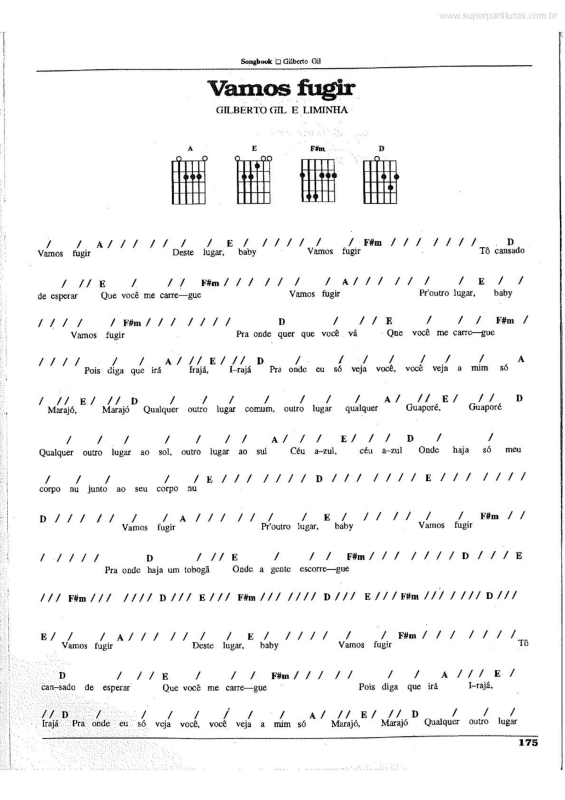 www.superpartituras.com.br
Songbook □ Gilberto Gil
Vamos fugir
GILBERTO GIL E LIMINHA
A E F#m D
/ / A / / / / / / / E / / / / / / / F#m / / / / / / / D
Vamos fugir Deste lugar, baby Vamos fugir Tô cansado
/ / / E / / / F#m / / / / / / / / A / / / / / / / E / /
de esperar Que você me carre—gue Vamos fugir Pr'outro lugar, baby
/ / / / / F#m / / / / / / / D / / / E / / / F#m /
Vamos fugir Pra onde quer que você vá Que você me carre—gue
/ / / / / / A / / / E / / / D / / / / / / / A
Pois diga que irá Irajá, I-rajá Pra onde eu só veja você, você veja a mim só
/ / / E / / / D / / / / / / / A / / / E / / / D
Marajó, Marajó Qualquer outro lugar comum, outro lugar qualquer Guaporé, Guaporé
/ / / / / / / A / / / E / / / D / /
Qualquer outro lugar ao sol, outro lugar ao sul Céu a-zul, céu a-zul Onde haja só meu
/ / / / / E / / / / / / / D / / / / / / / E / / / / / / /
corpo nu junto ao seu corpo nu
D / / / / / / / A / / / / / / / E / / / / / / / F#m / /
Vamos fugir Pr'outro lugar, baby Vamos fugir
/ / / / / D / / / E / / / F#m / / / / / / / D / / / E
Pra onde haja um tobogã Onde a gente escorre—gue
/ / / F#m / / / / / / / D / / / E / / / F#m / / / / / / / D / / / E / / / F#m / / / / / / / D / / /
E / / / A / / / / / / / E / / / / / / / F#m / / / / / / /
Vamos fugir Deste lugar, baby Vamos fugir Tô
D / / / E / / / F#m / / / / / / / A / / / E /
can-sado de esperar Que você me carre—gue Pois diga que irá I-rajá,
/ / D / / / / / / / A / / / E / / / D / / /
Irajá Pra onde eu só veja você, você veja a mim só Marajó, Marajó Qualquer outro lugar
175